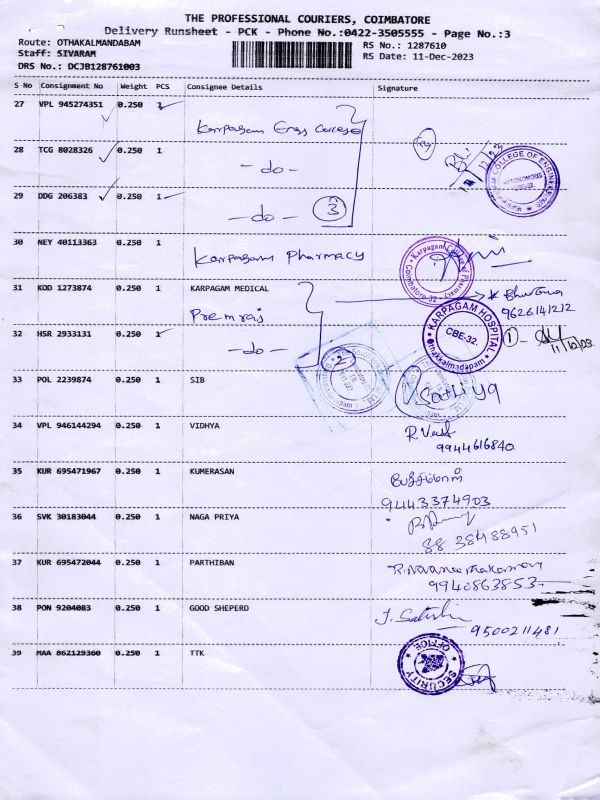 THE PROFESSIONAL COURIERS, COIMBATORE
Delivery Runsheet - PCK - Phone No.:0422-3505555 - Page No.:3
Route: OTHAKALMANDABAM
RS No.: 1287610
Staff: SIVARAM
RS Date: 11-Dec-2023
DRS No.: DCJB128761003
S No Consignment No Weight PCS Consignee Details Signature
27 VPL 945274351 0.250 1
Karpagam Engg College
28 TCG 8028326 0.250 1
- do -
29 DDG 206383 0.250 1
- do - 3
30 NEY 40113363 0.250 1
Karpagam Pharmacy
31 KOD 1273874 0.250 1 KARPAGAM MEDICAL
9626141212
Premraj
KARPAGAM HOSPITAL
CBE-32.
Othakkalmadapam
32 HSR 2933131 0.250 1
- do -
2
33 POL 2239874 0.250 1 SIB
Sathiya
34 VPL 946144294 0.250 1 VIDHYA
9944616840
35 KUR 695471967 0.250 1 KUMERASAN
9443374903
36 SVK 30183044 0.250 1 NAGA PRIYA
88 38488951
37 KUR 695472044 0.250 1 PARTHIBAN
9940863853
38 PON 9204083 0.250 1 GOOD SHEPERD
J. Satish
9500211481
39 MAA 862129360 0.250 1 TTK
SECURITY OFFICE